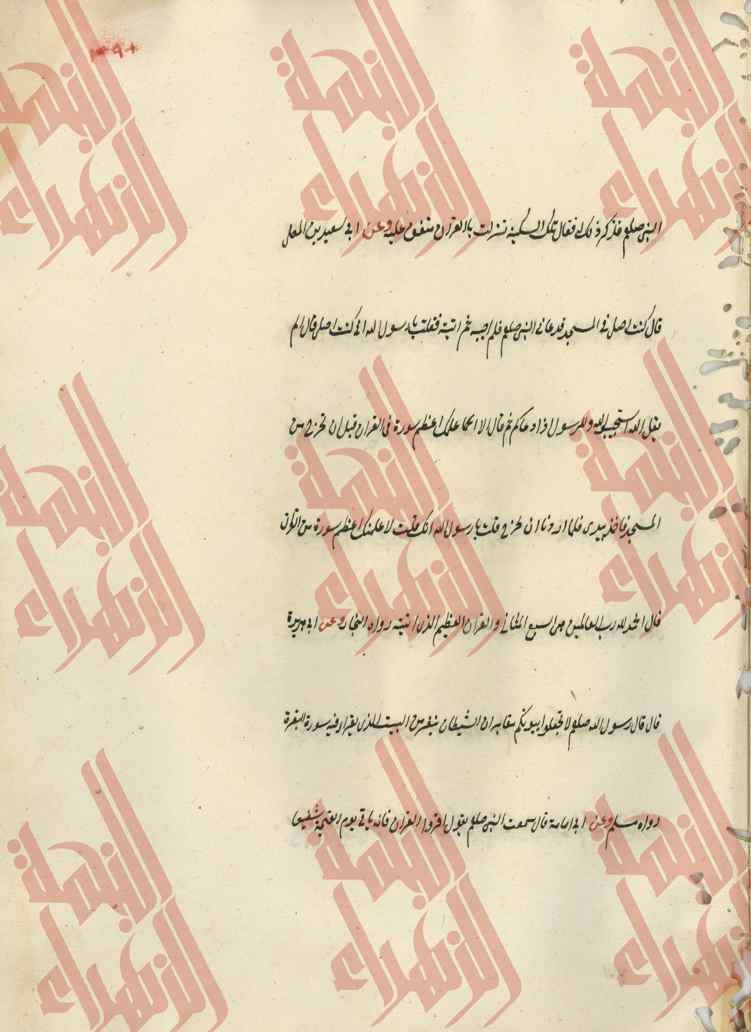 ٣٩٠
النبي صلعم فذكر ذلك فقال تلك السكينة تنزلت بالقران متفق عليه وعن ابي سعيد بن المعلى
قال كنت اصلي في المسجد فدعاني النبي صلعم فلم اجبه ثم اتيته فقلت يا رسول الله اني كنت اصلي قال الم
يقل الله استجيبوا لله وللرسول اذا دعاكم ثم قال الا اعلمك اعظم سورة في القران قبل ان تخرج من
المسجد فاخذ بيدي فلما اردنا ان نخرج قلت يا رسول الله انك قلت لاعلمنك اعظم سورة من القران
قال الحمد لله رب العالمين هي السبع المثاني والقران العظيم الذي اتيته رواه البخاري وعن ابي هريرة
قال قال رسول الله صلعم لا تجعلوا بيوتكم مقابر ان الشيطان ينفر من البيت الذي يقرا فيه سورة البقرة
رواه مسلم وعن ابي امامة قال سمعت النبي صلعم يقول اقروا القران فانه ياتي يوم القيمة شفيعا